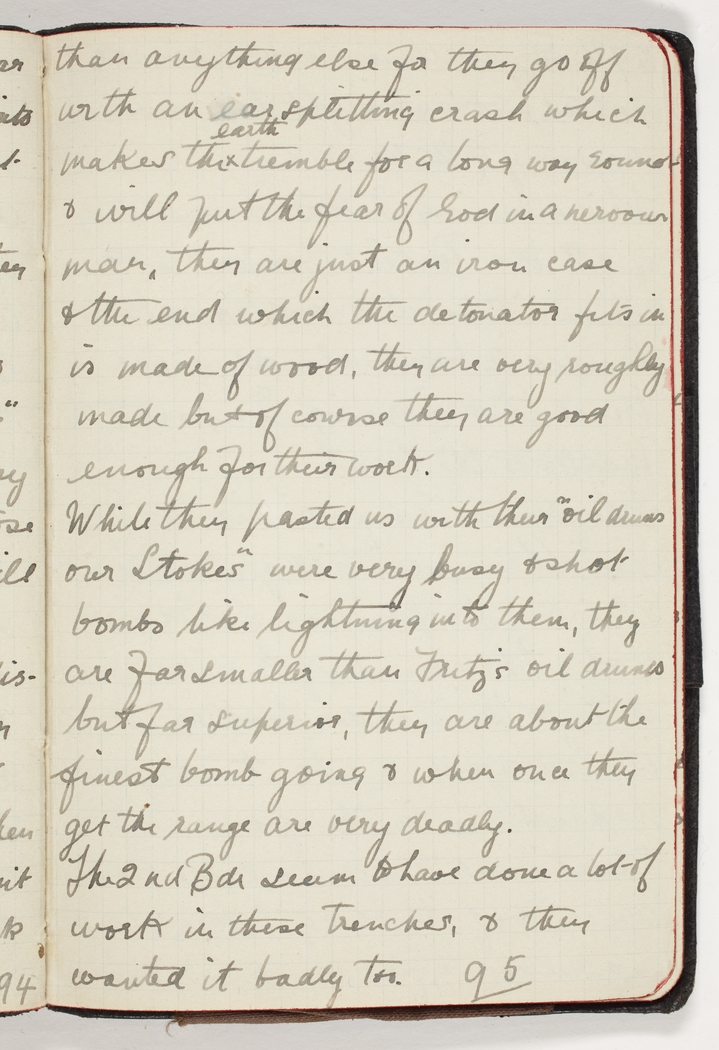 than anything else for they go off
with an ear splitting crash which
earth
makes the x tremble for a long way round
& will put the fear of God in a nervous
man, they are just an iron case
& the end which the detonator fits in
is made of wood, they are very roughly
made but of course they are good
enough for their work.
While they pasted us with their "oil drums
our Stokes" were very busy & shot
bombs like lightning into them, they
are far smaller than Fritz's oil drums
but far superior, they are about the
finest bomb going & when once they
get the range are very deadly.
The 2nd Bde seem to have done a lot of
work in these trenches, & they
wanted it badly too. 95
94